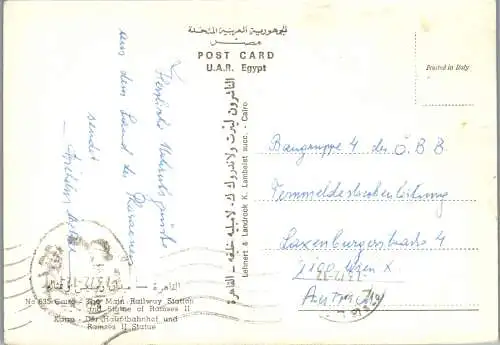 الجمهورية العربية المتحدة
مصر
POST CARD
U.A.R. Egypt
Printed in Italy
Herzliche Urlaubsgrüsse
aus dem Land der Pharaonen
sendet
الناشرون لينرت ولاندروك ك. لامبليه خلفه - القاهرة
Lehnert & Landrock K. Lambelet succ. - Cairo
Baugruppe 4 der Ö.B.B.
Fernmeldestreckenleitung
Laxenburgerstrasse 4
1100 Wien X
Austria
القاهرة - ميدان رمسيس
No 635 Cairo - The Main Railway Station
and Statue of Ramses II
Kairo - Der Hauptbahnhof und
Ramses II Statue